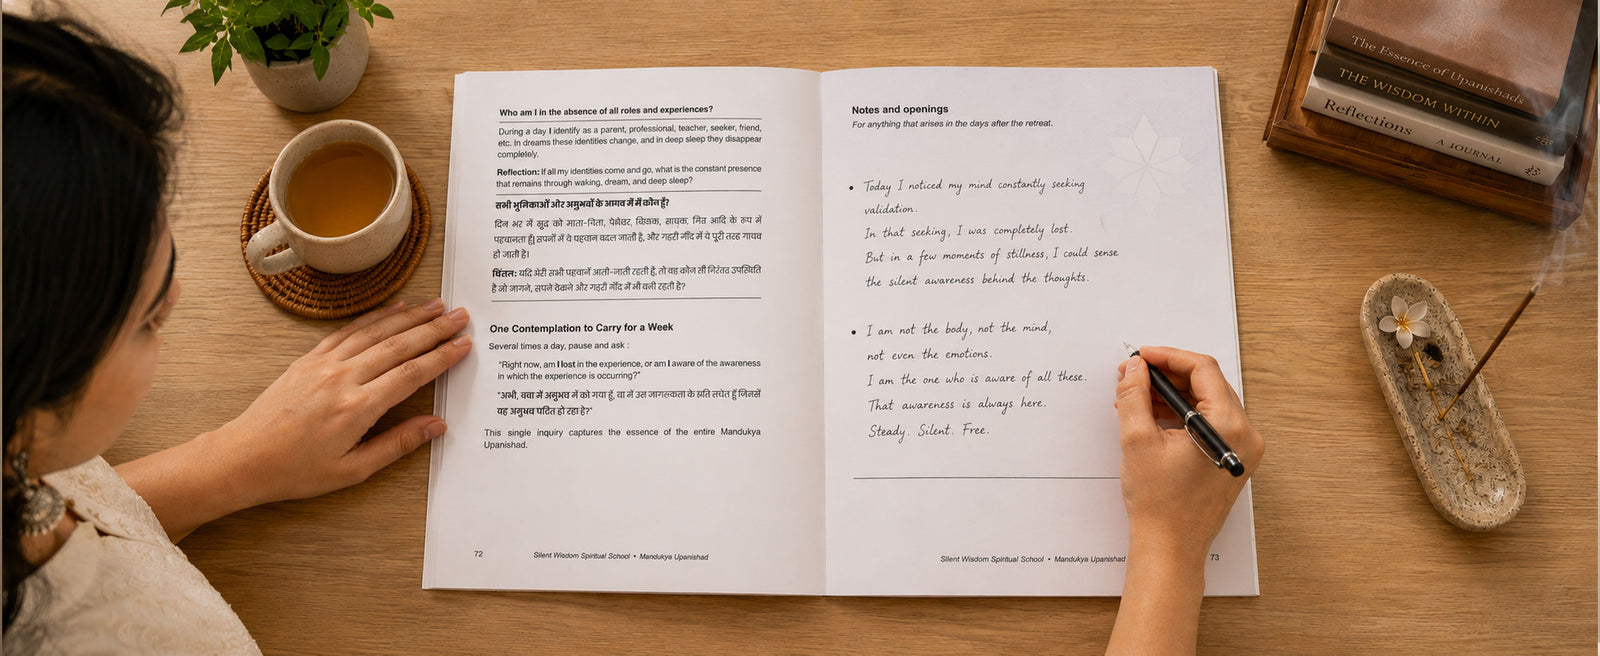 Who am I in the absence of all roles and experiences?
During a day I identify as a parent, professional, teacher, seeker, friend,
etc. In dreams these identities change, and in deep sleep they disappear
completely.
Reflection: If all my identities come and go, what is the constant presence
that remains through waking, dream, and deep sleep?
सभी भूमिकाओं और अमुभवों के आगव में मैं कौन हूँ?
दिन भर में खुद को माता-पिता, पेशेवर, शिक्षक, साधक, मित्र आदि के रूप में
पहचानता हूँ। सपनों में ये पहचान बदल जाती है, और गहरी नींद में ये पूरी तरह गायब
हो जाती है।
चिंतन: यदि मेरी सभी पहचानें आती-जाती रहती हैं, तो वह कौन सी निरंतर उपस्थिति
है जो जागने, सपने और गहरी नींद में भी बनी रहती है?
One Contemplation to Carry for a Week
Several times a day, pause and ask :
"Right now, am I lost in the experience, or am I aware of the awareness
in which the experience is occurring?"
"अभी, में अमुभव में को गया हूँ, में उस जागरूकता के प्रति सचेत हूँ जिसमें
वह अमुभव घटित हो रहा है?"
This single inquiry captures the essence of the entire Mandukya
Upanishad.
72
Silent Wisdom Spiritual School • Mandukya Upanishad
Notes and openings
For anything that arises in the days after the retreat.
• Today I noticed my mind constantly seeking
validation.
In that seeking, I was completely lost.
But in a few moments of stillness, I could sense
the silent awareness behind the thoughts.
• I am not the body, not the mind,
not even the emotions.
I am the one who is aware of all these.
That awareness is always here.
Steady. Silent. Free.
Silent Wisdom Spiritual School • Mandukya Upanishad
73
The Essence of Upanishads
THE WISDOM WITHIN
Reflections
A JOURNAL